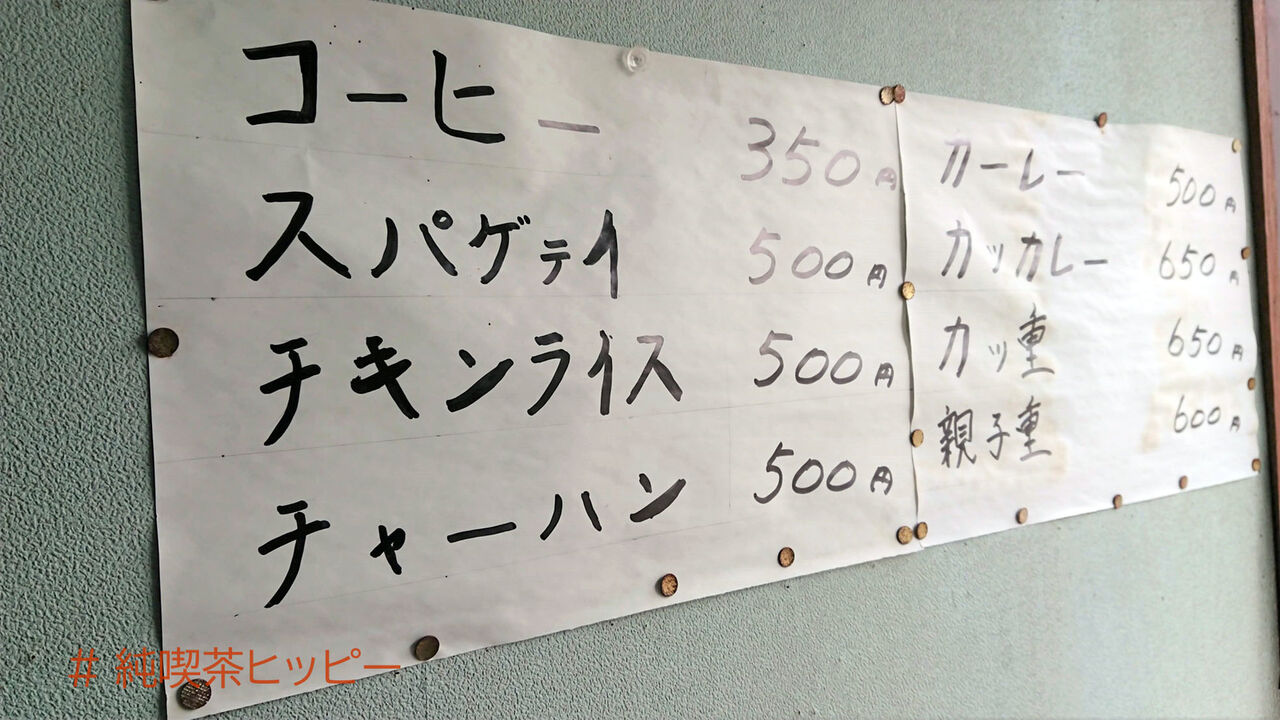 コーヒー 350円
スパゲティ 500円
チキンライス 500円
チャーハン 500円
カーレー 500円
カッカレー 650円
カッ重 650円
親子重 600円
# 純喫茶ヒッピー